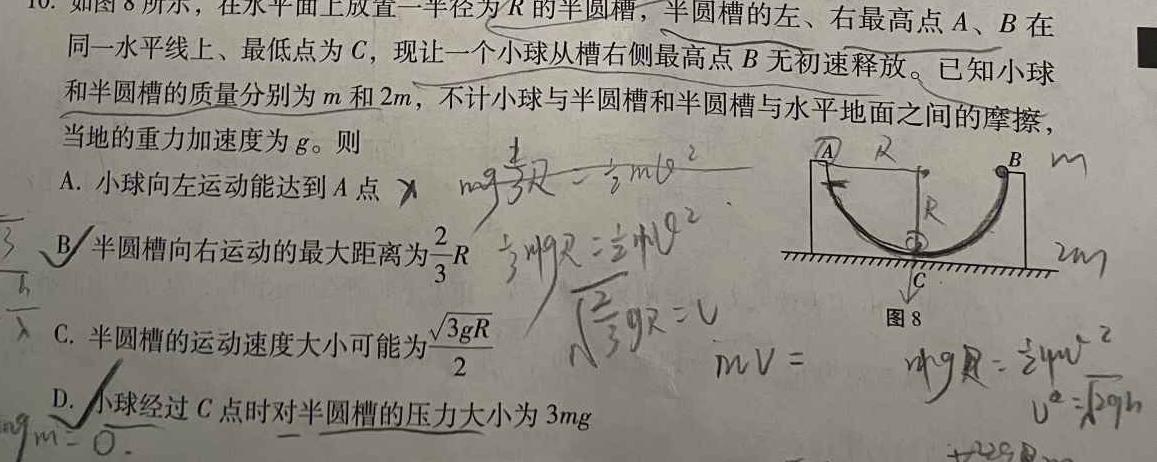 10. 如图 8 所示，在水平面上放置一半径为 R 的半圆槽，半圆槽的左、右最高点 A、B 在
同一水平线上、最低点为 C，现让一个小球从槽右侧最高点 B 无初速释放。已知小球
和半圆槽的质量分别为 m 和 2m，不计小球与半圆槽和半圆槽与水平地面之间的摩擦，
当地的重力加速度为 g。则
A. 小球向左运动能达到 A 点
B. 半圆槽向右运动的最大距离为 2/3 R
C. 半圆槽的运动速度大小可能为 √3gR/2
D. 小球经过 C 点时对半圆槽的压力大小为 3mg
A R B m
R
C 2m
图 8
1/3 mgR = 1/2 mv²
√2/3 gR = v
mv =